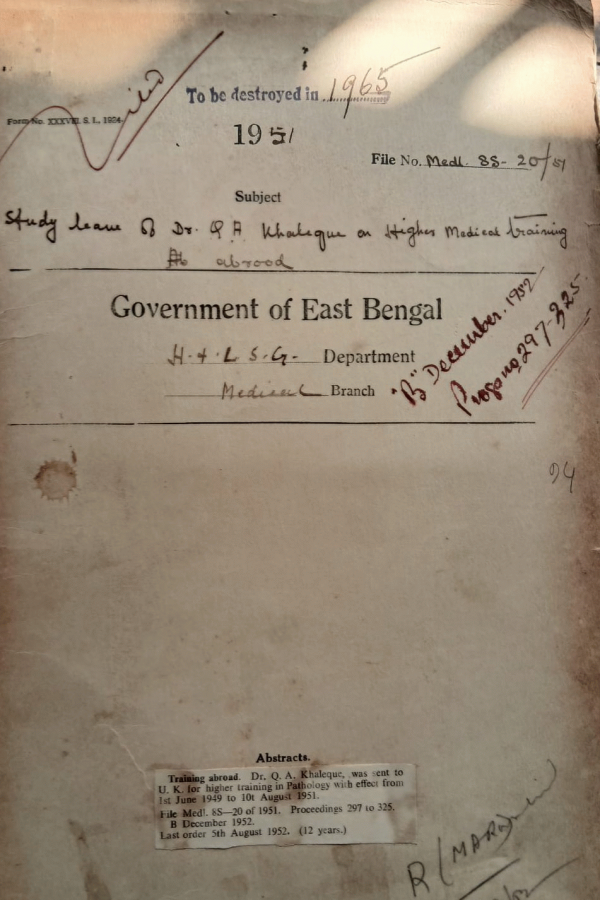 To be destroyed in 1965
Form No. XXXVIII. S. I., 1924
1951
File No. Medl. 8S- 20/51
Subject
Study leave of Dr. Q A Khaleque on Higher Medical training
abroad
Government of East Bengal
H. & L S. G. Department
Medical Branch
"B" December. 1952
Progs nos 297-325
94
Abstracts.
Training abroad. Dr. Q. A. Khaleque, was sent to
U. K. for higher training in Pathology with effect from
1st June 1949 to 10t August 1951.
File Medl. 8S—20 of 1951. Proceedings 297 to 325.
B December 1952.
Last order 5th August 1952. (12 years.)
R